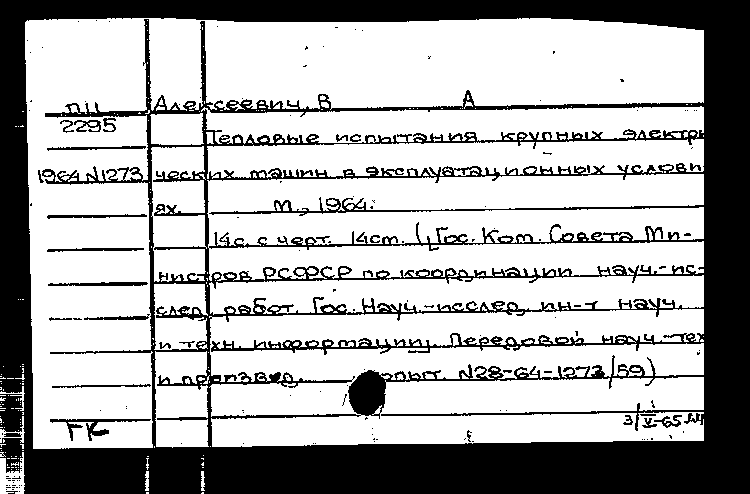 ПЦ Алексеевич, В А
2295
Тепловые испытания крупных электри
1964 N1273 ческих машин в эксплуатационных услови
ях. М., 1964.
14с. с черт. 14см. (Гос. Ком. Совета Ми-
нистров РСФСР по координации науч.-ис-
след. работ. Гос. Науч.-исслед. ин-т науч.
и техн. информации. Передовой науч.-тех
и произвед. опыт. N28-64-1273/59)
ГК 3/V-65